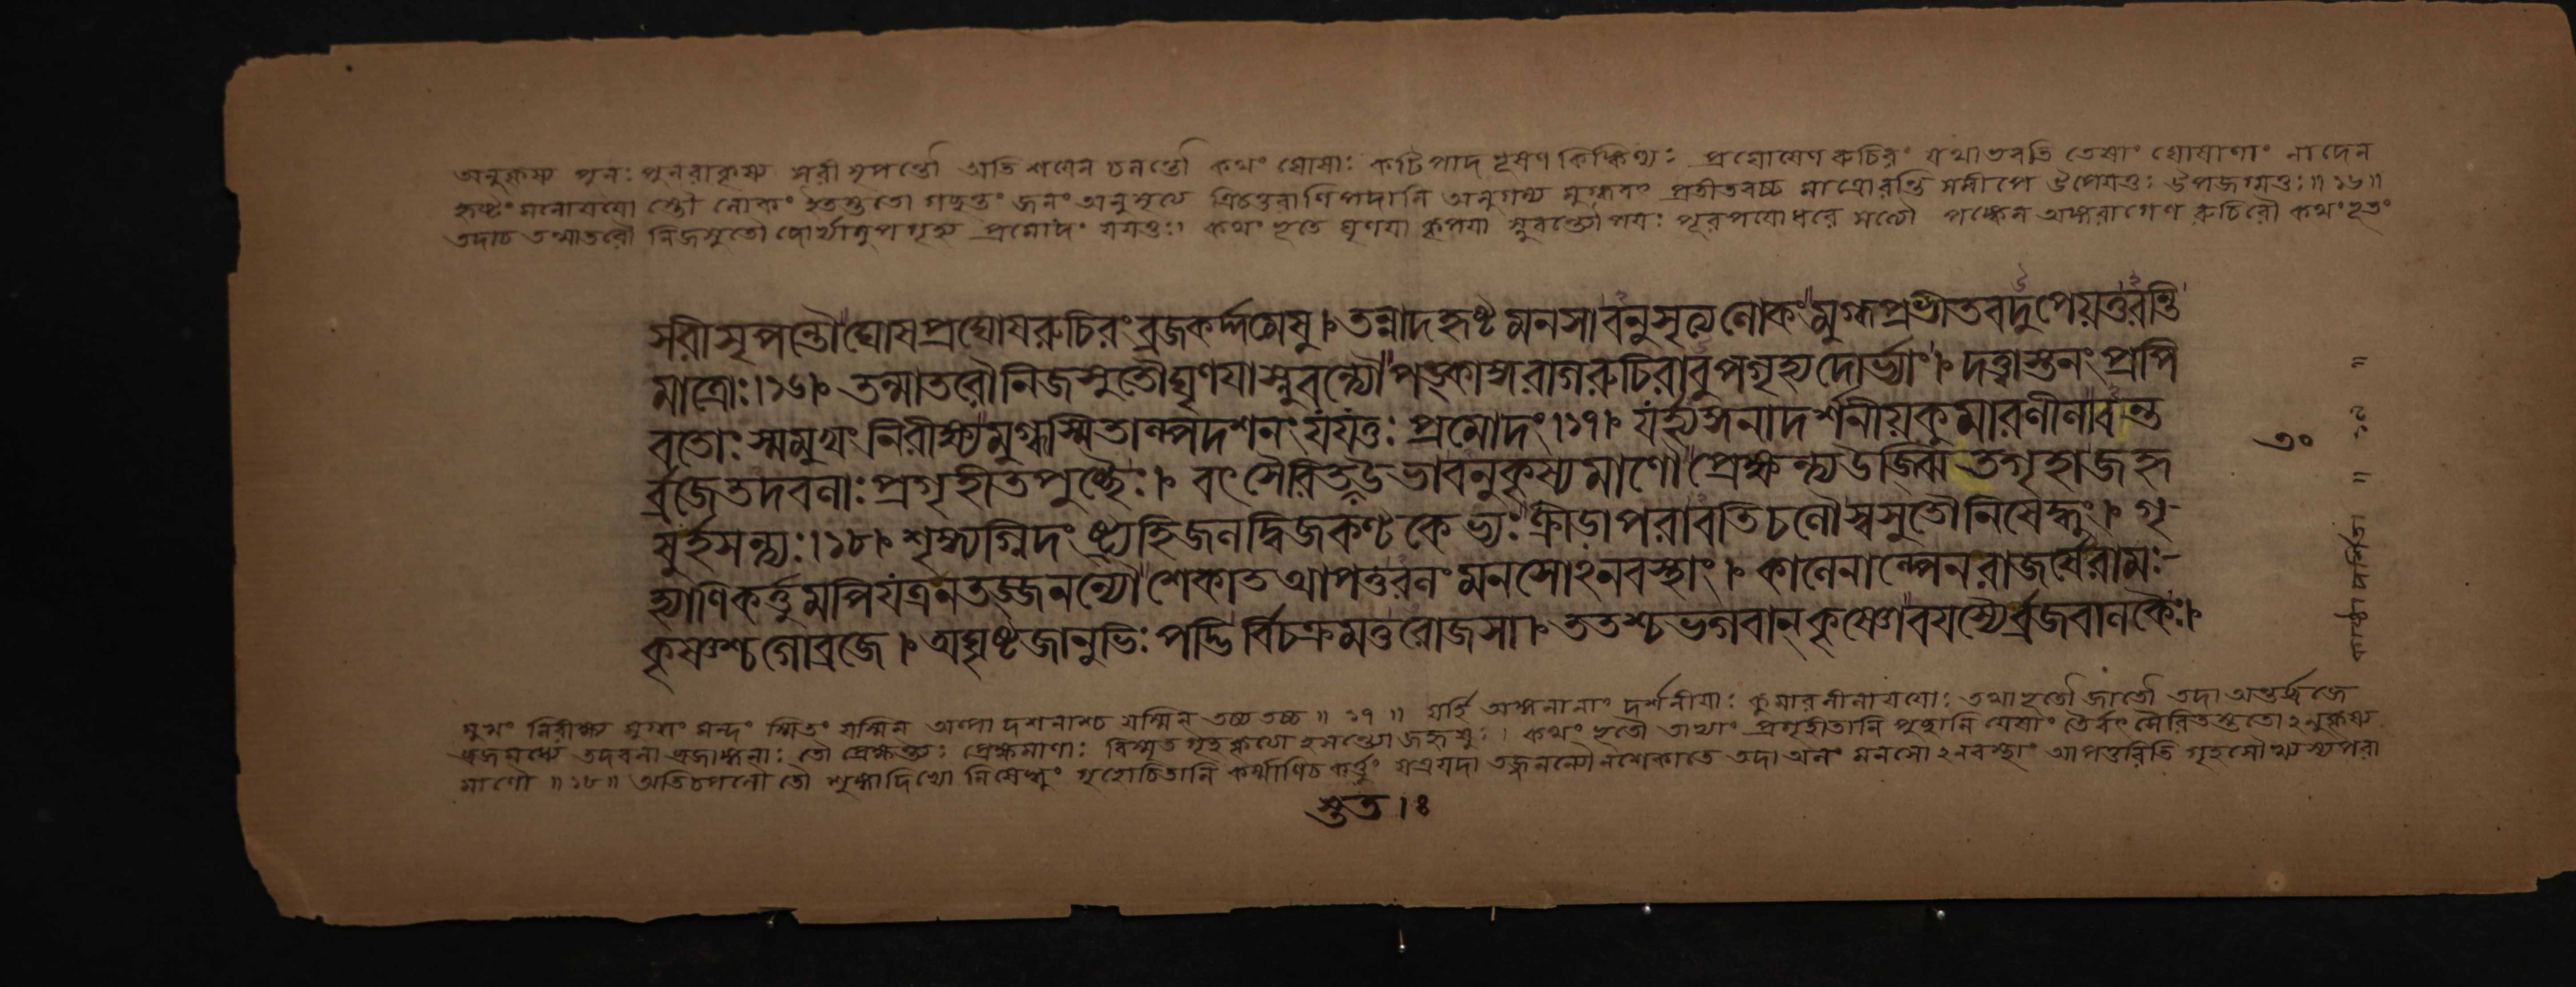 অনুকৃষ্য পুনঃ পুনরাকৃষ্য সরীসৃপন্তৌ অতিশয়েন চলন্তৌ কথং ঘোষাঃ কটিপাদভূষণকিঙ্কিণ্যঃ প্রঘোষেণ রুচিরং যথা ভবতি তেষাং ঘোষাণাং নাদেন
হৃষ্টং মনো যয়োস্তৌ লোকং ইতস্ততো গচ্ছন্তং জনং অনুসৃত্য ত্রিচতুরাণি পদানি অনুগম্য মুগ্ধবৎ প্রভীতবচ্চ মাত্রোরন্তি সমীপে উপেয়তুঃ উপজগ্মতুঃ ॥ ১৬ ॥
তদা চ তন্মাতরৌ নিজসুতৌ দোর্ভ্যামুপগৃহ্য প্রমোদং যযতুঃ। কথং ভূতে ঘৃণয়া কৃপয়া স্নুবন্ত্যৌ পয়ঃ পঙ্কেন অঙ্গরাগেণ রুচিরৌ কথং ভূতং
সরীসৃপন্তৌঘোষপ্রঘোষরুচিরংব্রজকর্দ্দমেষু। তন্নাদহৃষ্টমনসাবনুসৃত্যলোকংমুগ্ধপ্রভীতবদুপেয়তুরন্তি
মাত্রোঃ।১৬। তন্মাতরৌনিজসুতৌঘৃণয়াস্নুবন্ত্যৌপঙ্কাঙ্গরাগরুচিরাবুপগৃহ্যদোর্ভ্যাং। দত্ত্বাস্তনংপ্রপি
বতোঃস্মমুখংনিরীক্ষ্যমুগ্ধস্মিতাল্পদশনংযযতুঃপ্রমোদং।১৭। যর্হ্যঙ্গনাদর্শনীয়কুমারলীলাবন্ত
র্ব্রজেতদবলাঃপ্রগৃহীতপুচ্ছৈঃ। বৎসৈরিতস্ততউভাবনুকৃষ্যমাণৌপ্রেক্ষন্ত্যউজ্ঝিতগৃহাজহৃ
ষুর্হসন্ত্যঃ।১৮। শৃঙ্গ্যগ্নিদংষ্ট্র্যহিজলদ্বিজকণ্টকেভ্যঃক্রীড়াপরাবতিচলৌস্বসুতৌনিষেদ্ধুং। গৃ-
হ্যাণিকর্ত্তুমপিযত্রনতজ্জনন্যৌশেকাতআপতুরলংমনসোঽনবস্থাং। কালেনাল্পেনরাজর্ষেরামঃ-
কৃষ্ণশ্চগোব্রজে। অঘৃষ্টজানুভিঃপদ্ভির্বিচক্রমতুরোজসা। ততশ্চভগবান্কৃষ্ণোবয়স্যৈর্ব্রজবালকৈঃ।
মুখং নিরীক্ষ্য মুগ্ধং মন্দং স্মিতং যস্মিন্ অল্পা দশনাশ্চ যস্মিন্ তচ্চ তচ্চ ॥ ১৭ ॥ যর্হি অঙ্গনানাং দর্শনীয়াঃ কুমারলীলা যয়োঃ তথাভূতৌ জাতৌ তদা অন্তর্ব্রজে
ব্রজমধ্যে তদবলা ব্রজাঙ্গনাঃ তৌ প্রেক্ষন্ত্যঃ প্রেক্ষমাণাঃ বিস্মৃতগৃহকৃত্যা হসন্ত্যো জহৃষুঃ। কথং ভূতৌ তাভ্যাং প্রগৃহীতানি পুচ্ছানি যেষাং তৈর্বৎসৈরিতস্ততোঽনুকৃষ্য
মাণৌ ॥ ১৮ ॥ অতিচপলৌ তৌ শৃঙ্গ্যাদিভ্যো নিষেদ্ধুং গৃহোচিতানি কর্ম্মাণি চ কর্ত্তুং যত্র যদা তজ্জনন্যৌ ন শেকাতে তদা অলং মনসোঽনবস্থাং আপতুরিতি গৃহসৌখ্যস্য পরা
৩০